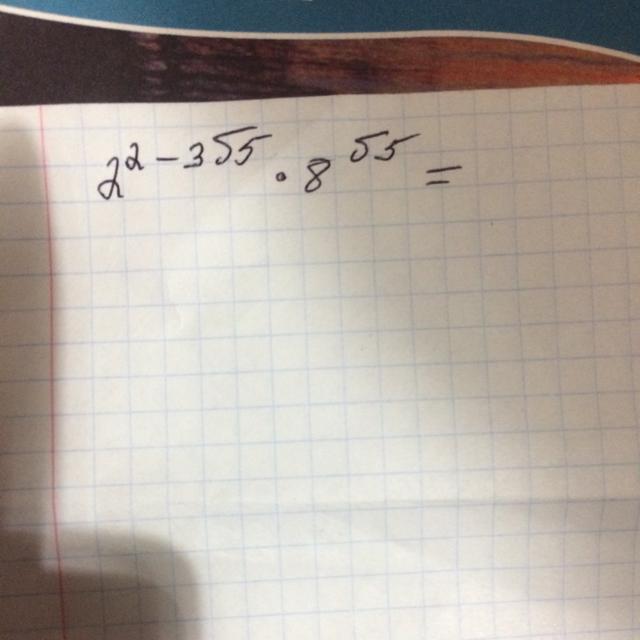 2^{2-3\sqrt{5}} \cdot 8^{\sqrt{5}} =